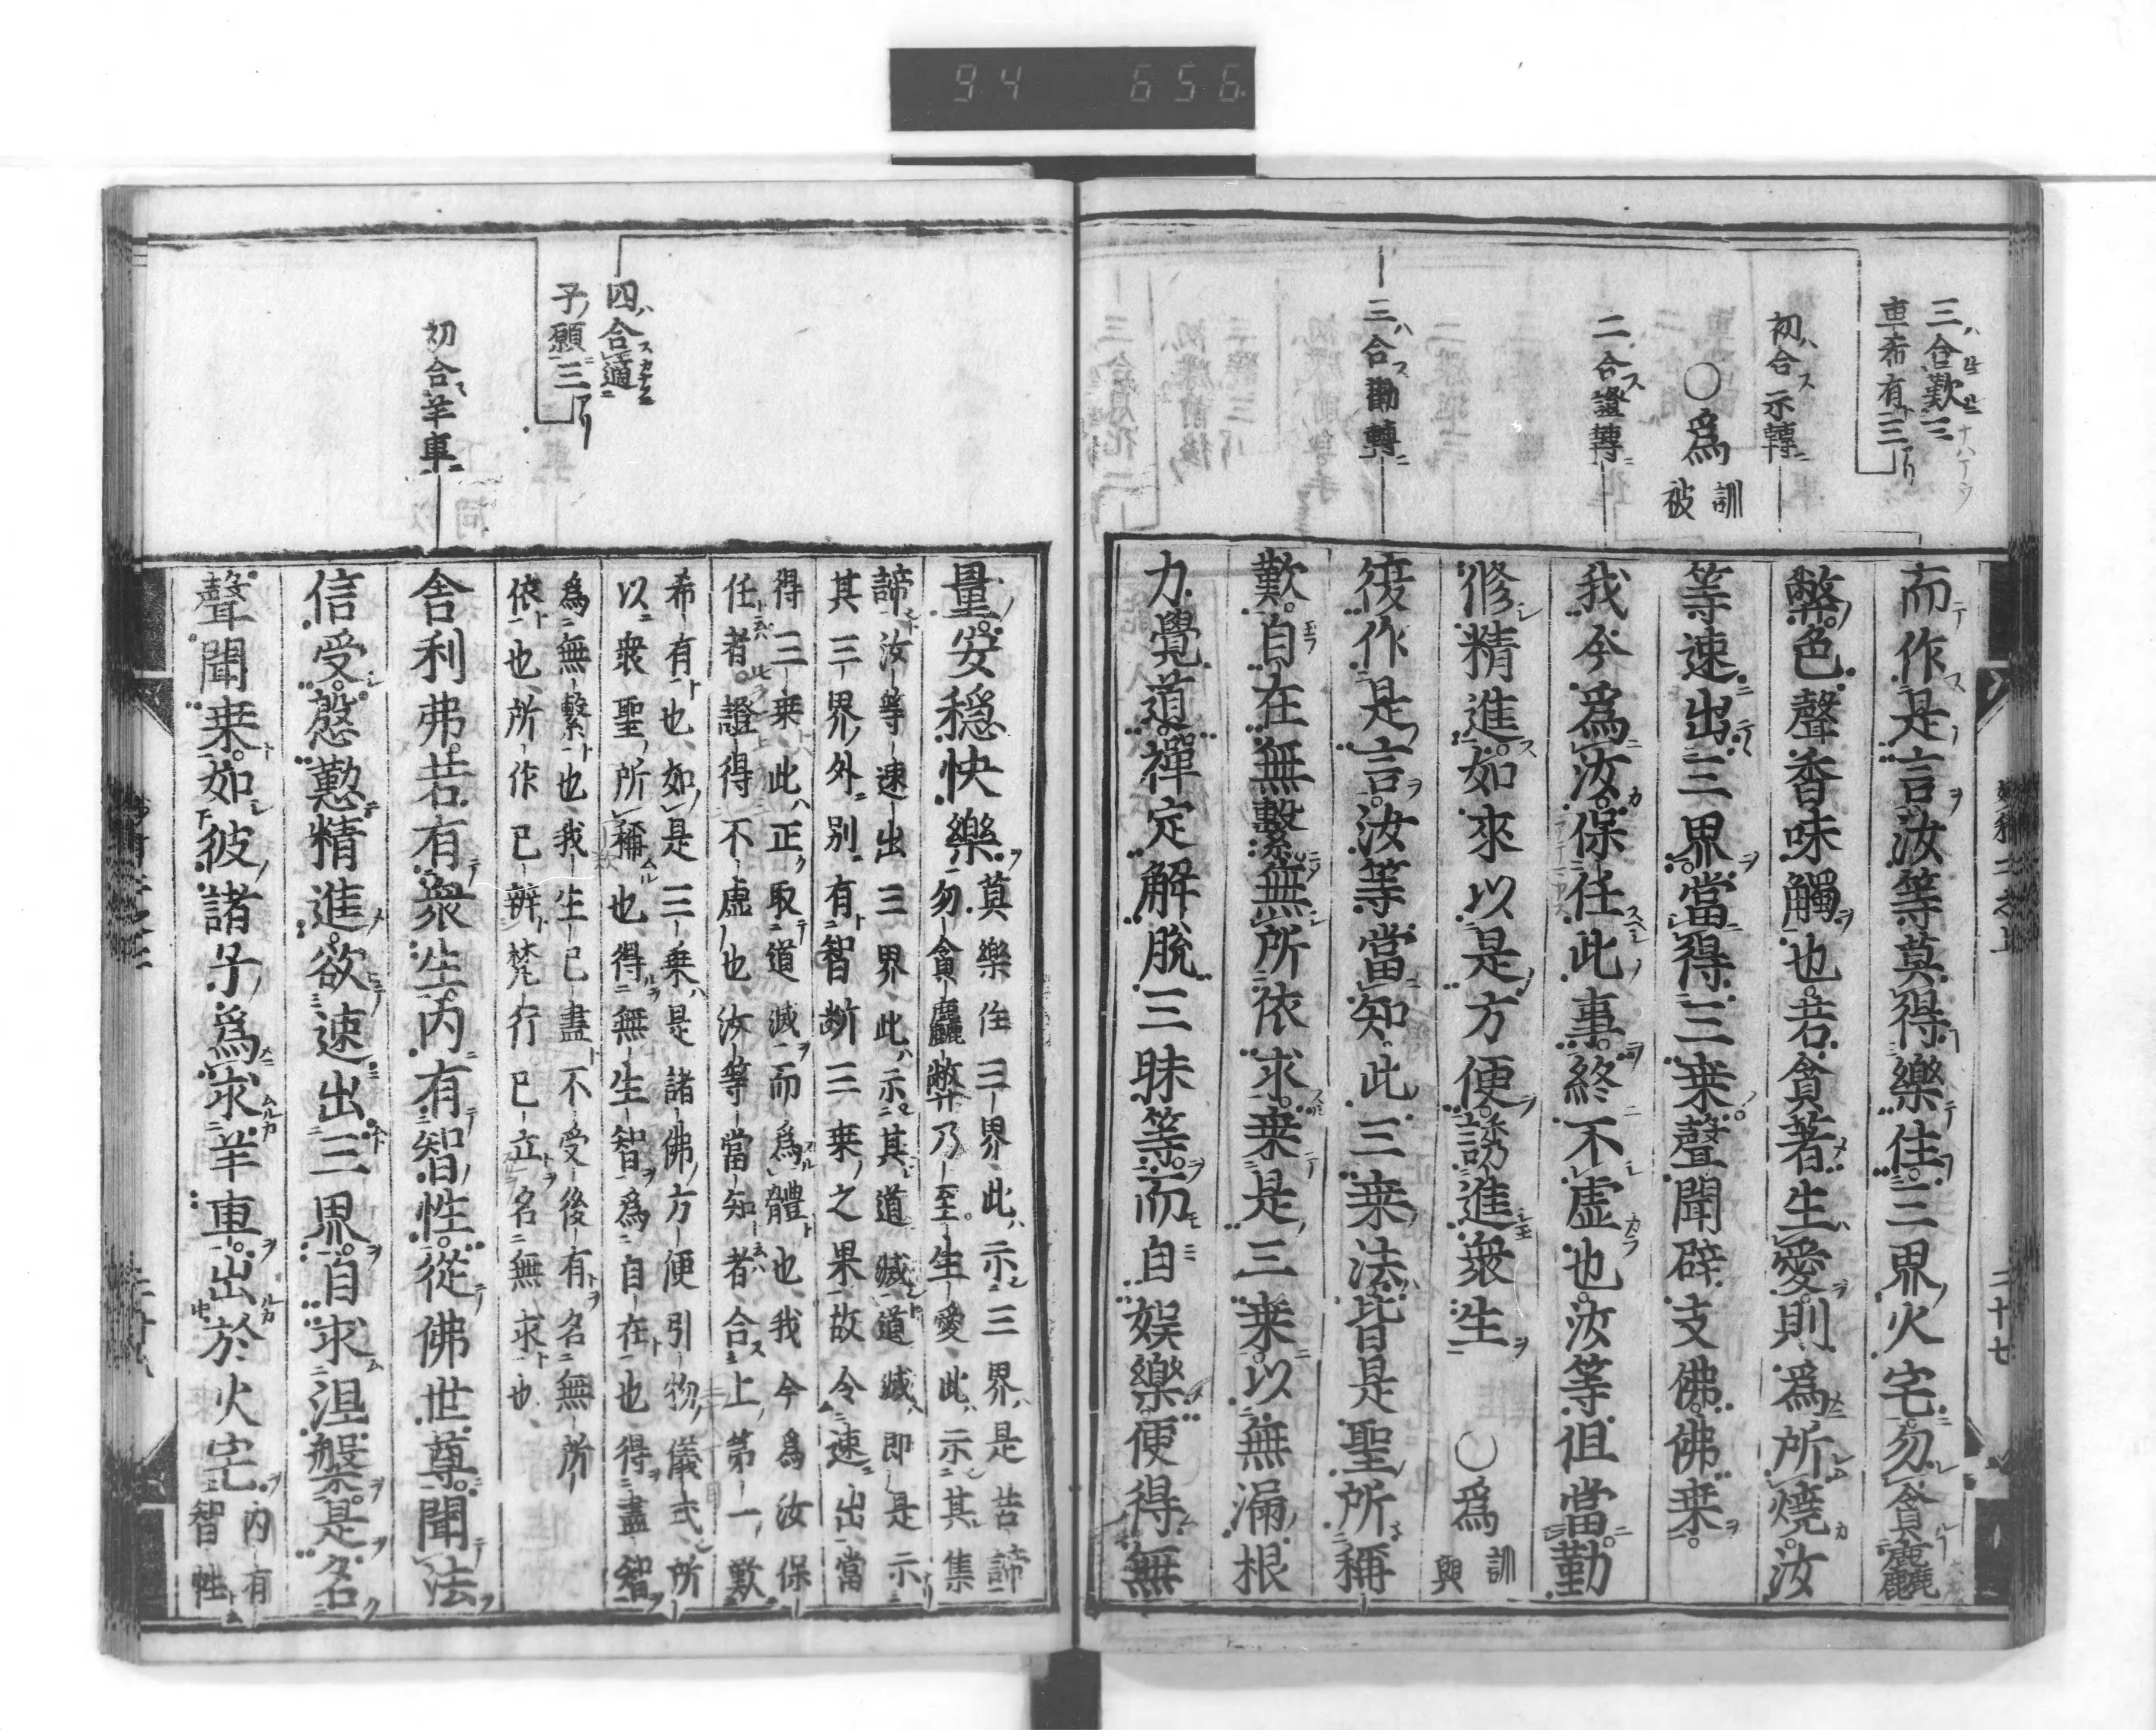 94 656
三合歎三
車希有三
初合示轉
○爲訓被
二合證轉
三合勸轉
而作是言汝等莫得樂住三界火宅勿貪麤
弊色聲香味觸也若貪著生愛則爲所燒汝
等速出三界當得三乗聲聞辟支佛佛乗
我今爲汝保任此事終不虚也汝等但當勤
修精進如來以是方便誘進衆生○爲訓與
復作是言汝等當知此三乗法皆是聖所稱
歎自在無繫無所依求乗是三乗以無漏根
力覺道禪定解脫三昧等而自娯樂便得無
二十七
四合適
子願三
初合羊車
量安穏快樂莫樂住三界此示三界是苦諦
勿貪麤弊乃至生愛此示其集
諦汝等速出三界此示其道滅道滅即是示
其三界外別有智断三乗之果故令速出當
得三乗此正取道滅而爲體也我今爲汝保
任者證得不虚也汝等當知者合上第一歎
希有也如是三乗是諸佛方便引物儀式所
以衆聖所稱也得無生智爲自在也得盡智
爲無繫也我生已盡不受後有名無所
依也所作已辨梵行已立名無求也
舎利弗若有衆生内有智性從佛世尊聞法
信受慇懃精進欲速出三界自求涅槃是名
聲聞乗如彼諸子爲求羊車出於火宅内有
智性